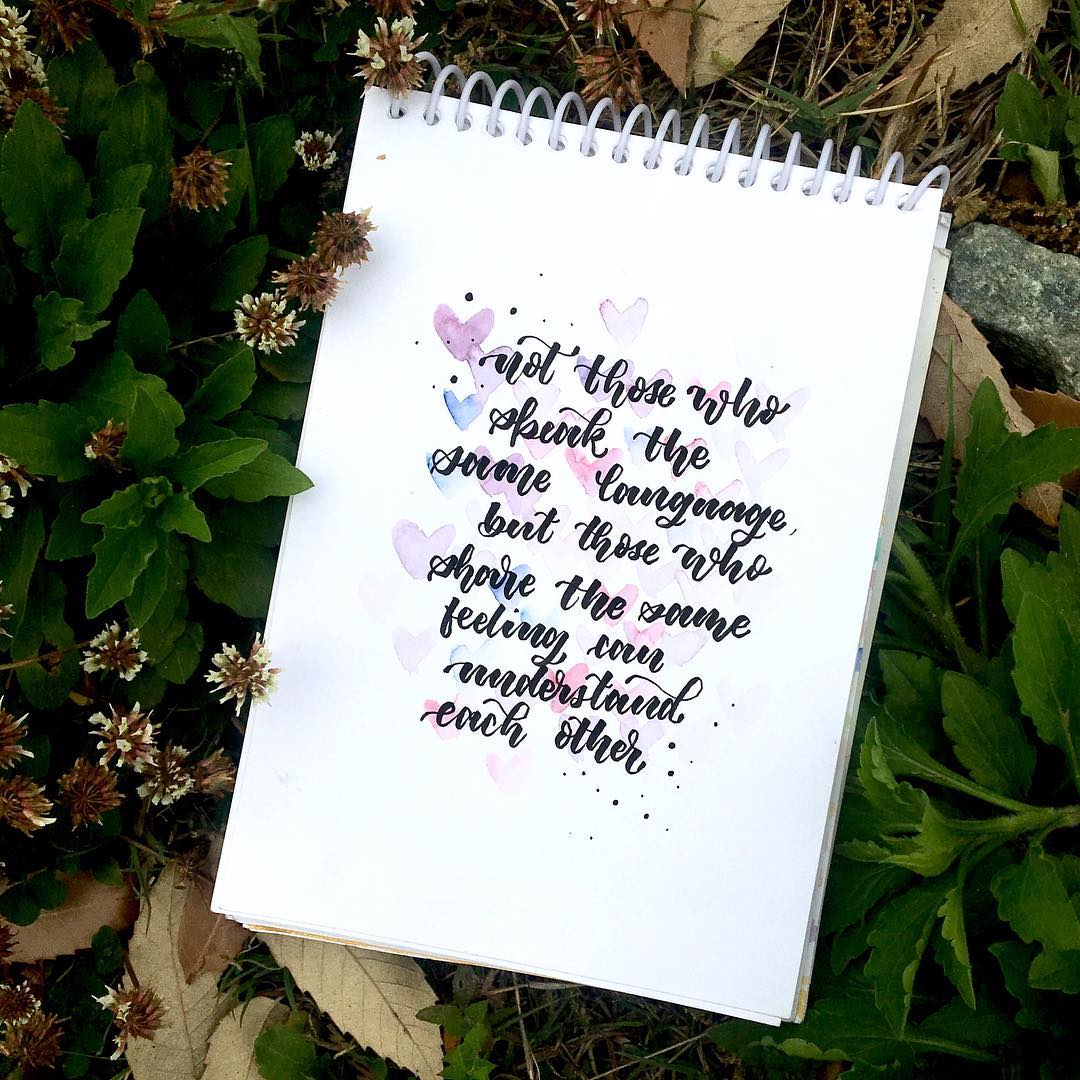 not those who
speak the
same language,
but those who
share the same
feeling can
understand
each other